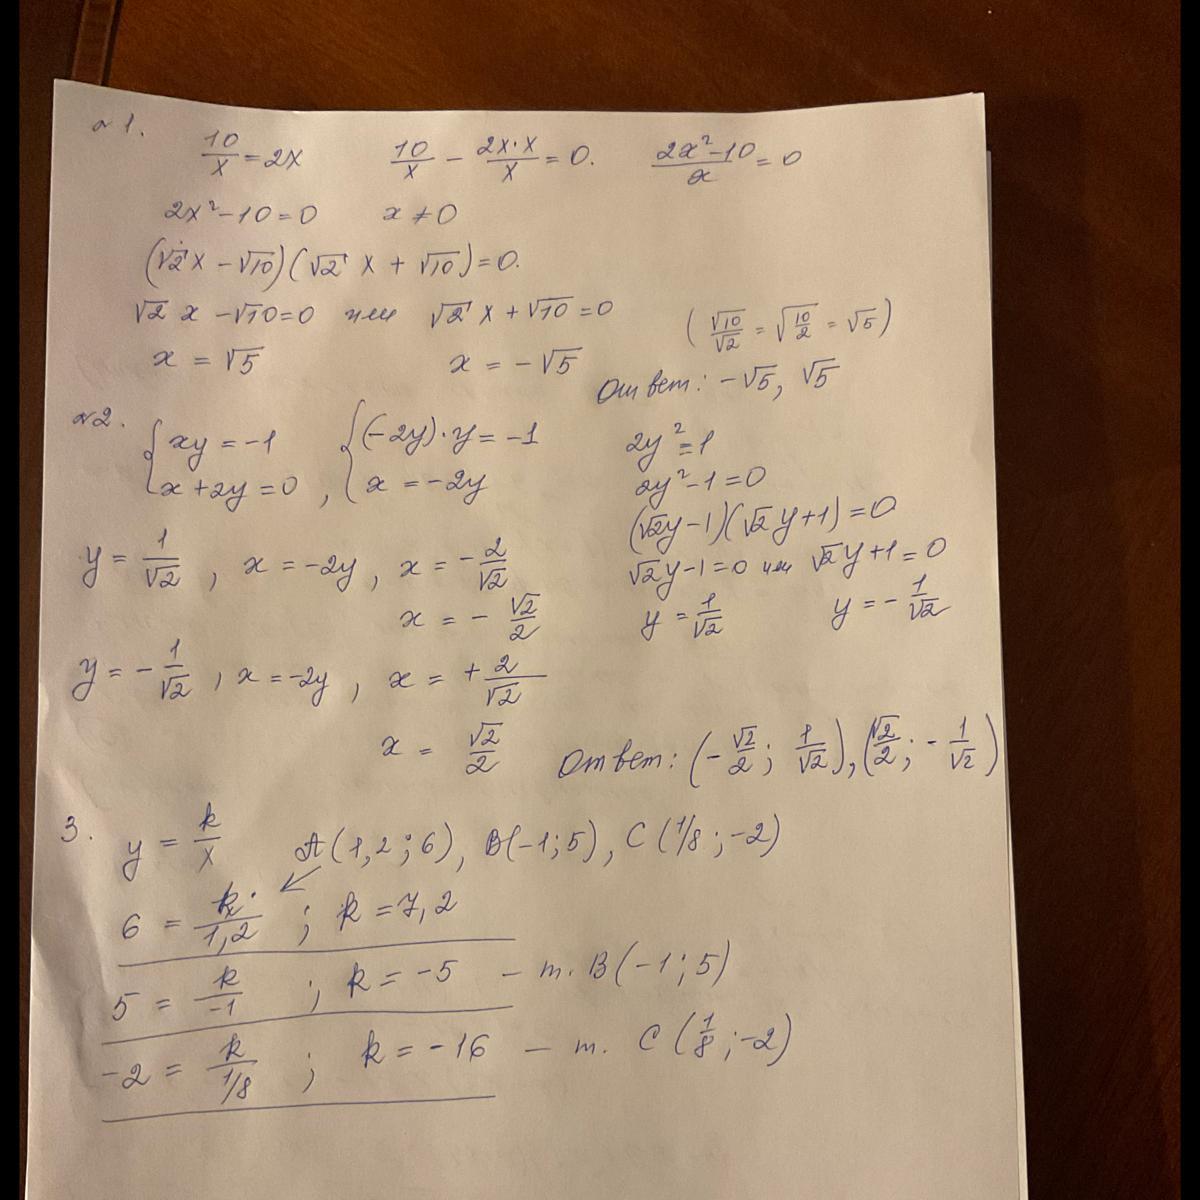 №1.
10/x = 2x    10/x - 2x·x/x = 0.    2x²-10/x = 0
2x²-10=0    x≠0
(√2 x - √10)(√2 x + √10) = 0.
√2 x - √10 = 0 или √2 x + √10 = 0    (√10/√2 = √10/2 = √5)
x = √5    x = -√5    Ответ: -√5, √5
№2.
{xy = -1    {(-2y)·y = -1    2y² = 1
x+2y = 0,    x = -2y    2y²-1=0
(√2y-1)(√2y+1)=0
y = 1/√2, x = -2y, x = -2/√2    √2y-1=0 или √2y+1=0
x = -√2/2    y = 1/√2    y = -1/√2
y = -1/√2, x = -2y, x = +2/√2
x = √2/2    Ответ: (-√2/2; 1/√2), (√2/2; -1/√2)
3. y = k/x    A(1,2; 6), B(-1; 5), C(1/8; -2)
6 = k/1,2 ; k = 7,2
5 = k/-1 ; k = -5 - т. B(-1; 5)
-2 = k/1/8 ; k = -16 - т. C(1/8; -2)